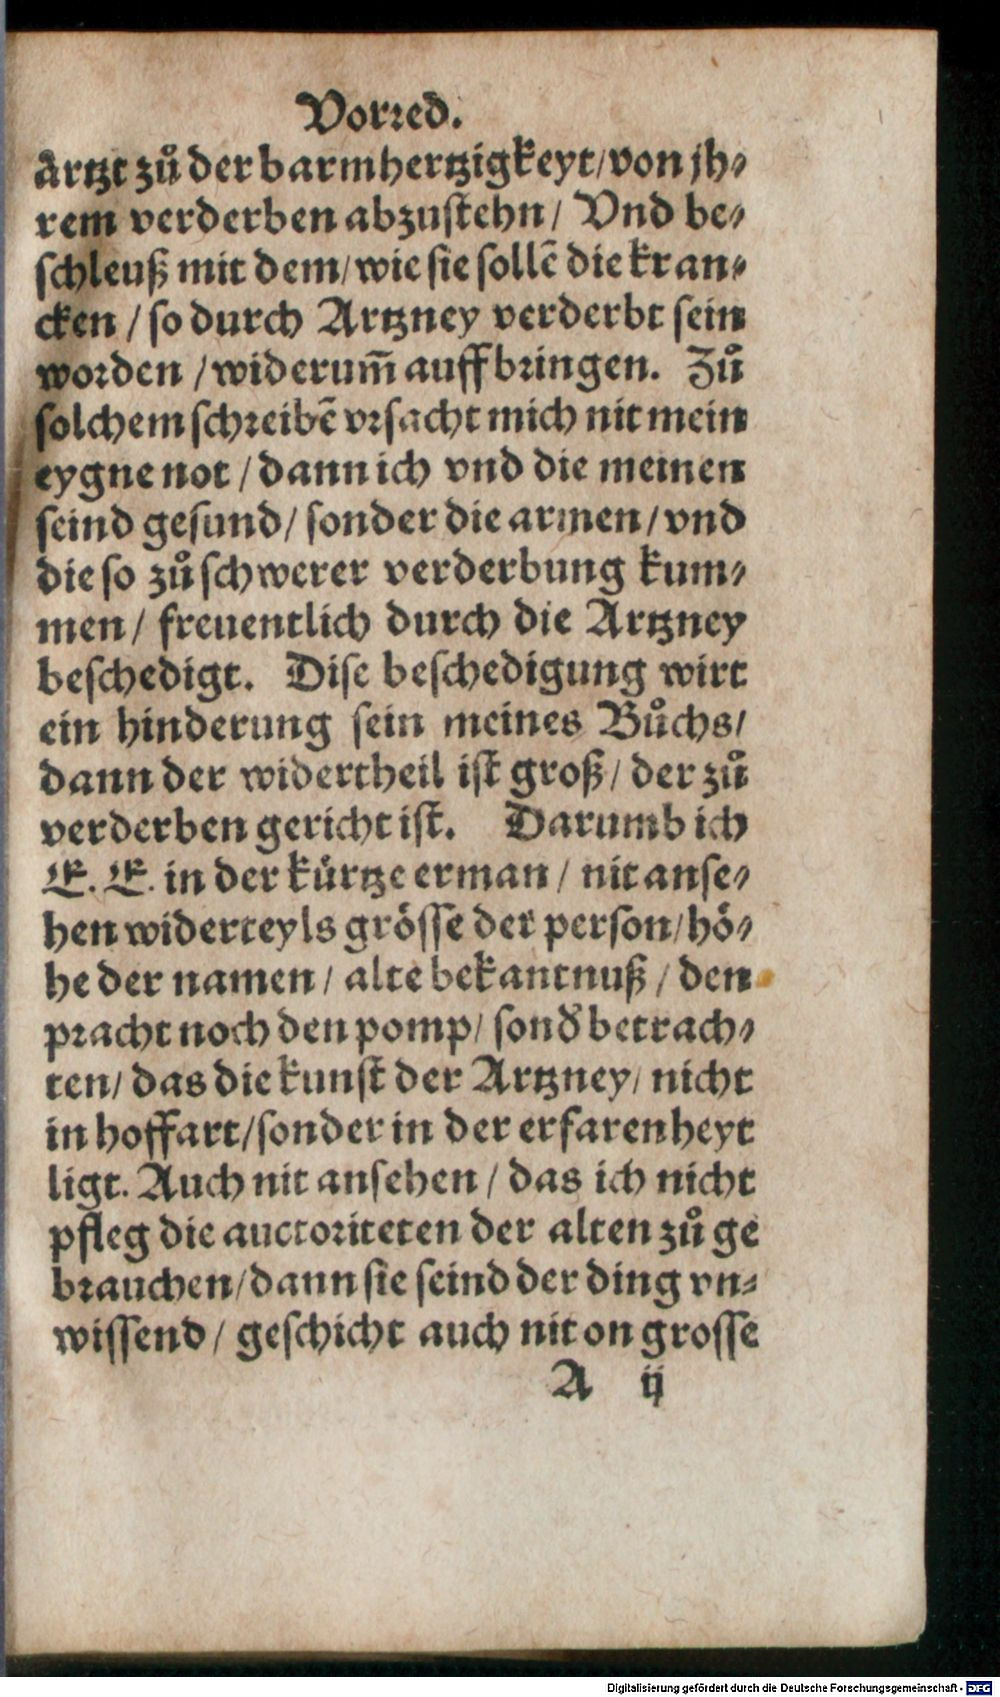 Vorꝛed.
ärtzt zů der barmhertzigkeyt/von jh⸗
rem verderben abzustehn/ Vnd be⸗
schleuß mit dem/wie sie sollē die kran⸗
cken /so durch Artzney verderbt sein
woꝛden /widerum̄ auffbꝛingen. Zů
solchem schꝛeibē vꝛsacht mich nit mein
eygne not /dann ich vnd die meinen
seind gesund/ sonder die armen/vnd
die so zů schwerer verderbung kum⸗
men/ freuentlich durch die Artzney
beschedigt. Dise beschedigung wirt
ein hinderung sein meines Bůchs/
dann der widertheil ist groß/ der zů
verderben gericht ist. Darumb ich
E. E. in der kürtze erman/ nit anse⸗
hen widerteyls grösse der person/hö⸗
he der namen/ alte bekantnuß/ den
pꝛacht noch den pomp/ sonď betrach⸗
ten/ das die kunst der Artzney/ nicht
in hoffart/sonder in der erfarenheyt
ligt. Auch nit ansehen/ das ich nicht
pfleg die auctoꝛiteten der alten zů ge
bꝛauchen/dann sie seind der ding vn⸗
wissend/ geschicht auch nit on grosse
A ij
Digitalisierung gefördert durch die Deutsche Forschungsgemeinschaft - DFG